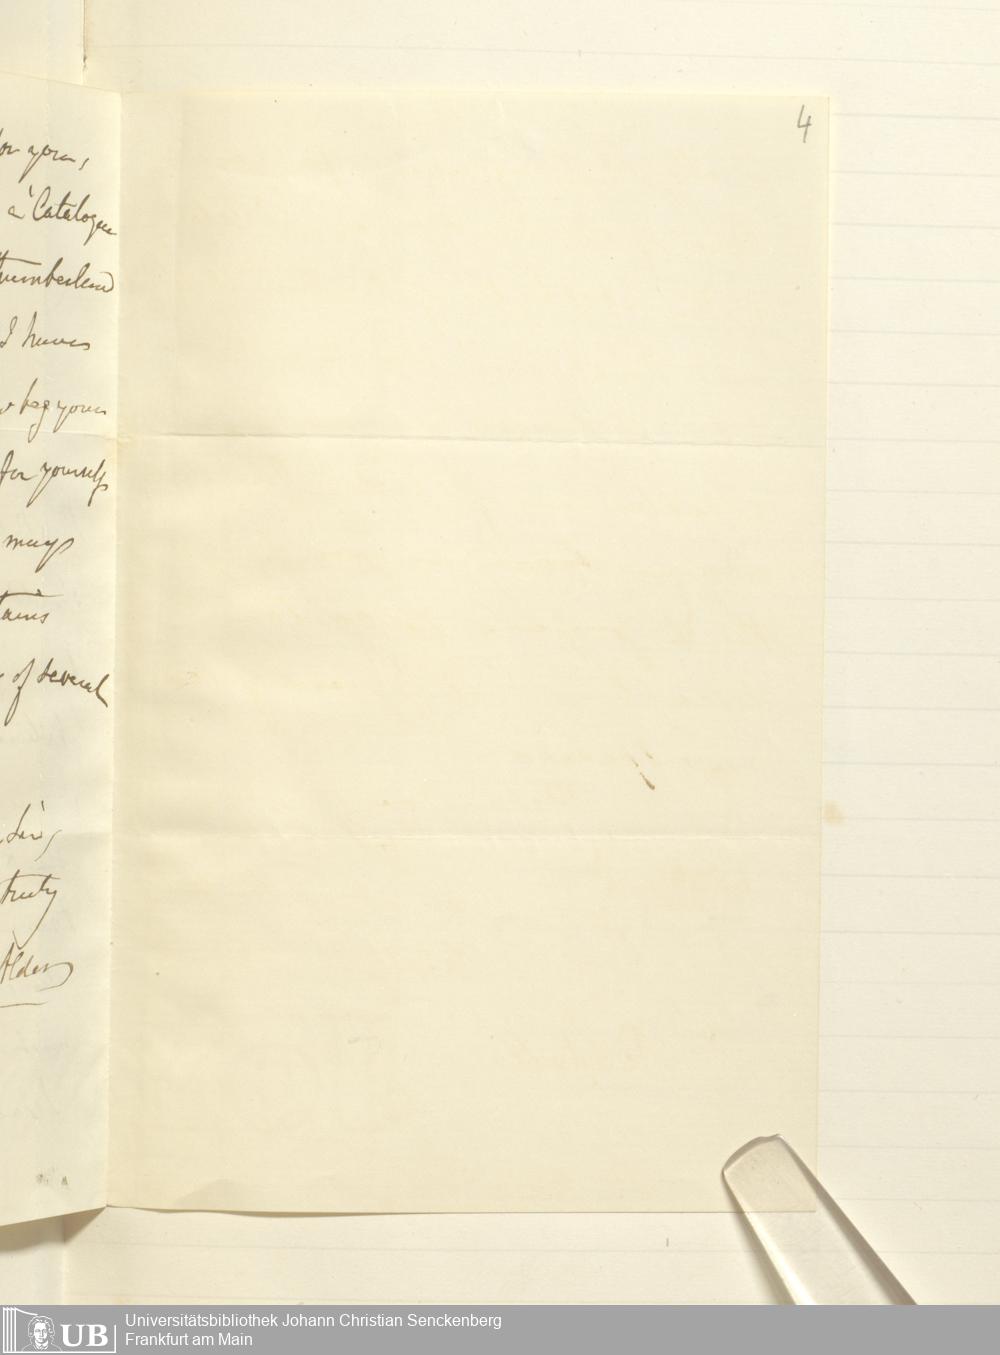 4
for you,
a Catalogue
thumberland
I have
beg your
for yourself
may
tains
of several
Sir,
truly
Alder
UB
Universitätsbibliothek Johann Christian Senckenberg
Frankfurt am Main